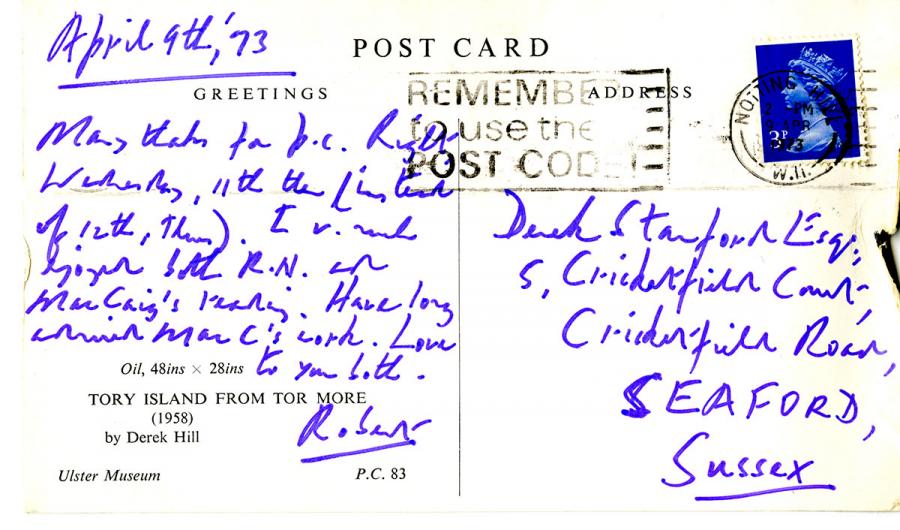 April 9th, '73
POST CARD
GREETINGS
ADDRESS
REMEMBE
to use the
POST CODE
NOTTING HILL
2 - PM
9 APR
1973
W.11
3P
Many thanks for p.c. Right
Wednesday, 11th then (instead
of 12th, Thurs). I v. much
enjoyed both R.N. and
MacCaig's reading. Have long
admired MacC's work. Love
to you both.
Robert
Oil, 48ins × 28ins
TORY ISLAND FROM TOR MORE
(1958)
by Derek Hill
Ulster Museum
P.C. 83
Derek Stanford Esq.,
5, Cricketfield Court
Cricketfield Road,
SEAFORD,
Sussex